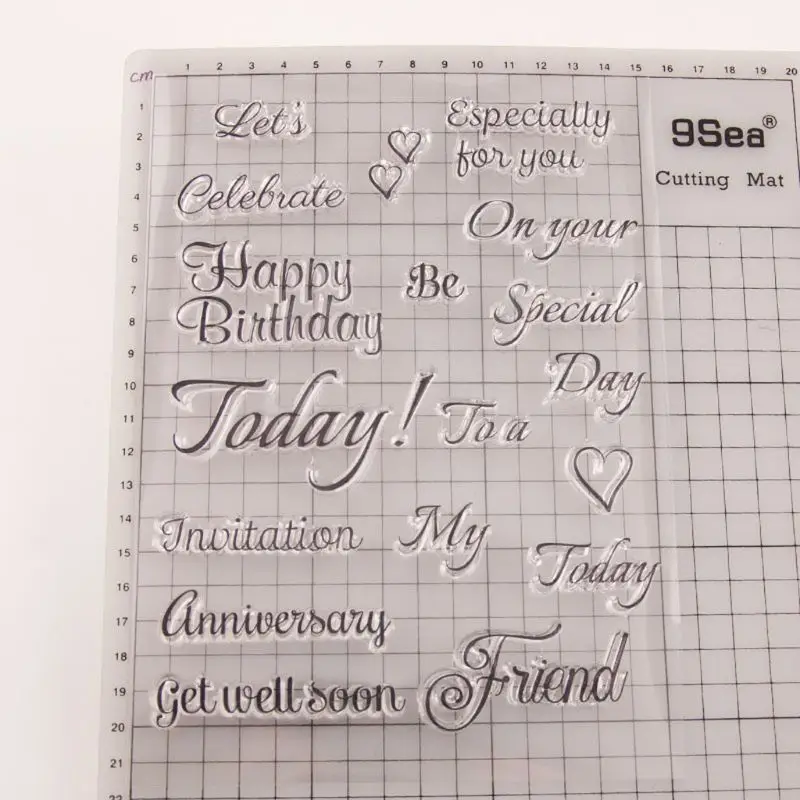 1 2 3 4 5 6 7 8 9 10 11 12 13 14 15 16 17 18 19 20
cm
1
2
3
4
5
6
7
8
9
10
11
12
13
14
15
16
17
18
19
20
21
22
Let's
Celebrate
Happy
Birthday
Today!
Invitation
Anniversary
Get well soon
Especially
for you
On your
Be
Special
Day
To a
My
Today
Friend
9Sea®
Cutting Mat